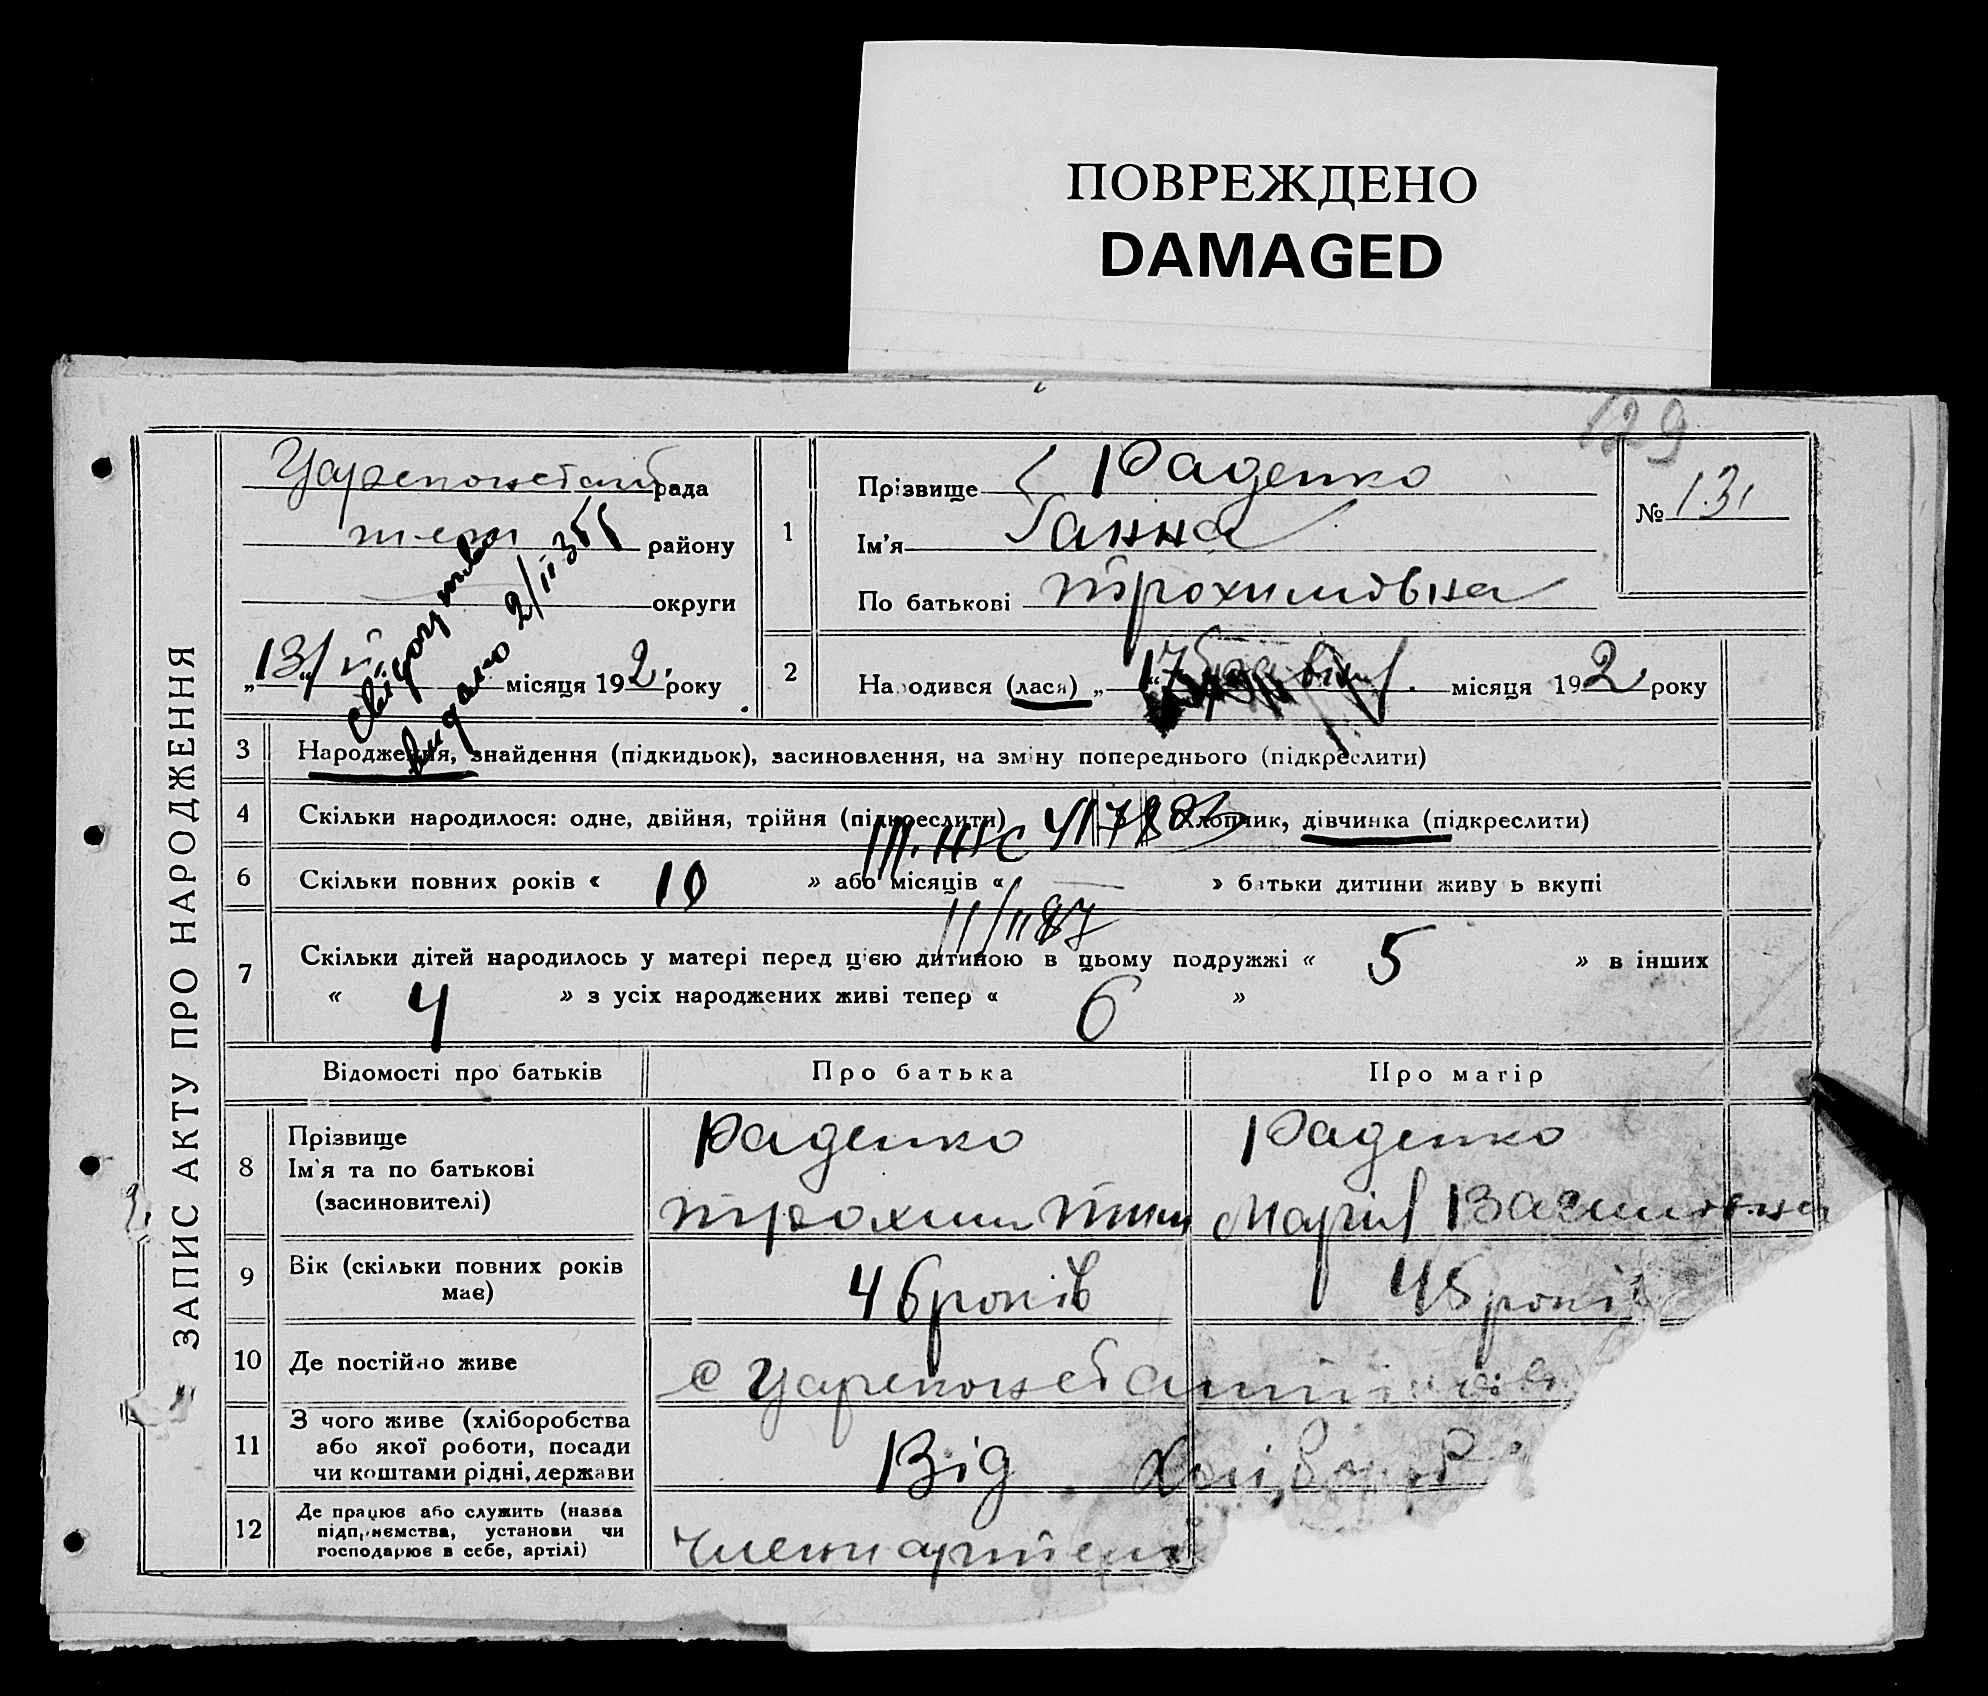 ПОВРЕЖДЕНО
DAMAGED
129
ЗАПИС АКТУ ПРО НАРОДЖЕННЯ
рада
району
округи
„13" місяця 192 року
видано 2/II 35
1
Прізвище Раденко
Ім'я Ганна
По батькові Трохимовна
№ 131
2
Народився (лася) „17" місяця 192 року
3
Народження, знайдення (підкидьок), засиновлення, на зміну попереднього (підкреслити)
4
Скільки народилося: одне, двійня, трійня (підкреслити) хлопчик, дівчинка (підкреслити)
6
Скільки повних років « 10 » або місяців « — » батьки дитини живуть вкупі
7
Скільки дітей народилось у матері перед цією дитиною в цьому подружжі « 5 » в інших
« 4 » з усіх народжених живі тепер « 6 »
Відомості про батьків
Про батька
Про матір
8
Прізвище
Ім'я та по батькові
(засиновителі)
Раденко
Трохим
Раденко
Марія Василовна
9
Вік (скільки повних років
має)
46 років
45 років
10
Де постійно живе
с
11
З чого живе (хліборобства
або якої роботи, посади
чи коштами рідні, держави
Від
12
Де працює або служить (назва
підприємства, установи чи
господарює в себе, артілі)
члени артілі